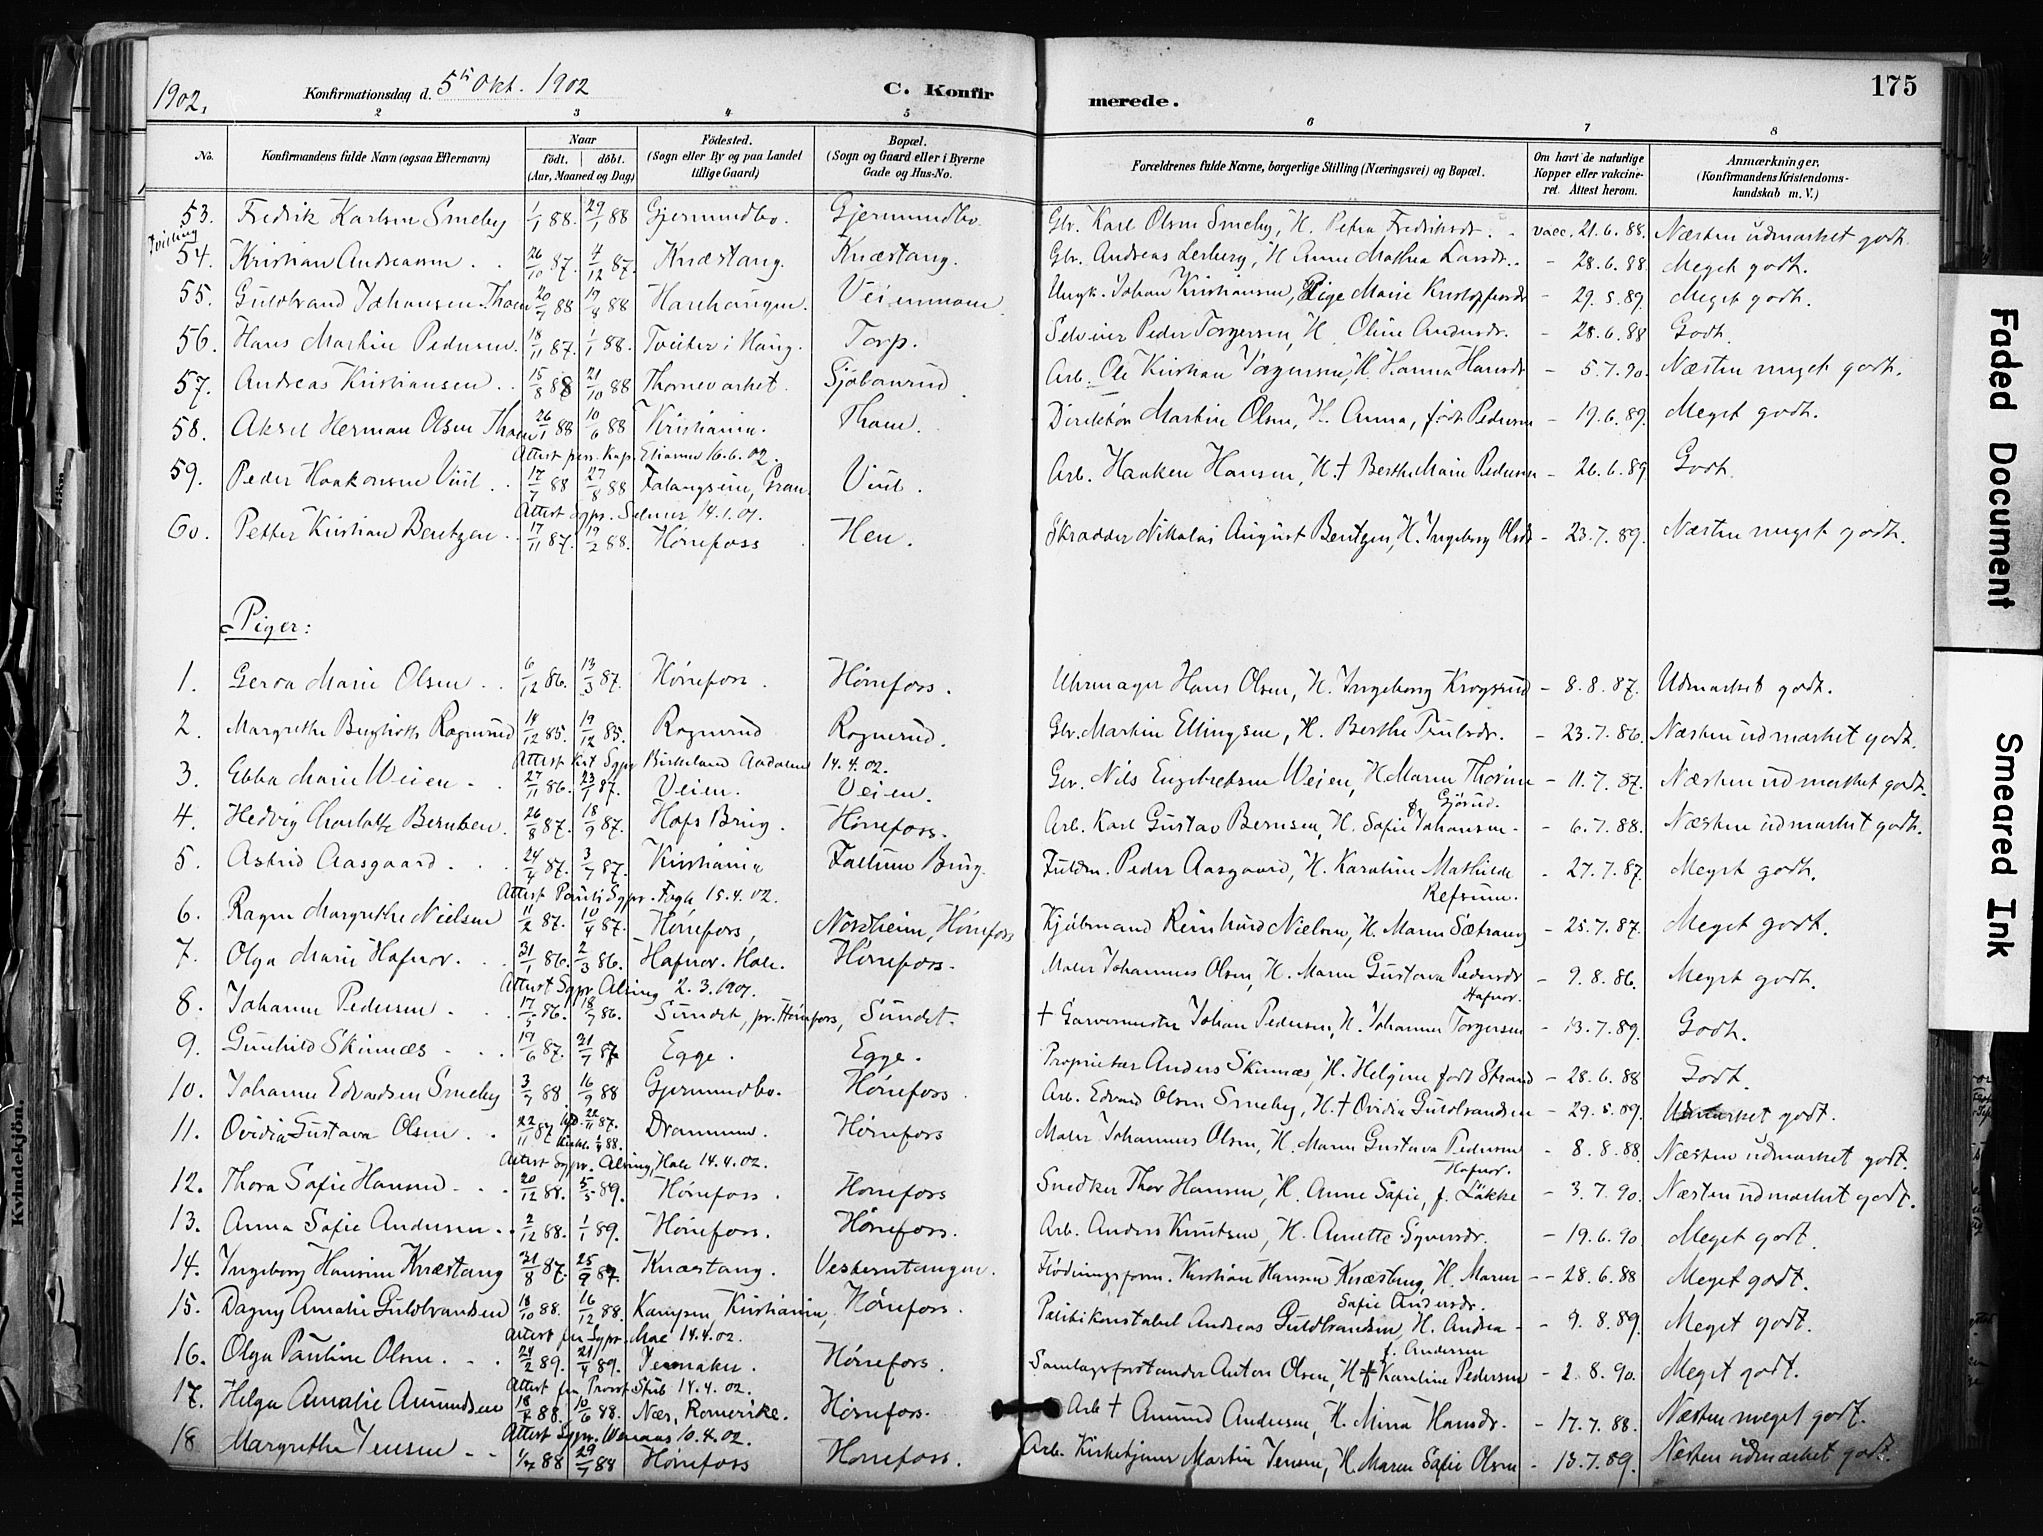 1902. Konfirmationsdag d. 5te Okt. 1902 C. Konfirmerede. 175
2 3 4 5 6 7 8
No. Konfirmandens fulde Navn (ogsaa Efternavn) Naar født. døbt. (Aar, Maaned og Dag) Födested. (Sogn eller By og paa Landet tillige Gaard) Bopæl. (Sogn og Gaard eller i Byerne Gade og Hus-No. Forældrenes fulde Navne, borgerlige Stilling (Næringsvei) og Bopæl. Om havt de naturlige Kopper eller vaccineret. Attest herom. Anmærkninger, (Konfirmandens Kristendomskundskab m. V.)
53. Fredrik Karlsen Smeby 1/1 88. 29/1 88 Gjermundbo. Gjermundbo. Gbr. Karl Olsen Smeby, H. Petra Fredriksdr. - vacc. 21.6.88. Næsten udmærket godt.
Tvilling
54. Kristian Andreassen 26/10 87. 4/12 87. Knæstang. Knæstang. Gbr. Andreas Lerberg, H. Anne Mathea Larsdr. - 28.6.88. Meget godt.
55. Guldbrand Johansen Tham 20/7 88 19/8 88 Harehaugen. Veienmoen Ungk. Johan Kristiansen, Pige Marie Kristoffersdr - 29.5.89. Meget godt.
56. Hans Martin Pedersen. 18/11 87. 1/1 88. Tveiter i Haug. Torp. Selveier Peder Torgersen, H. Oline Andersdr. - 28.6.88 Godt.
57. Andreas Kristiansen 15/8 88 21/10 88 Thornevarket. Sjøbanrud Arb. Ole Kristian Jørgensen, H. Hanna Hansdr. - 5.7.90. Næsten meget godt.
58. Aksel Herman Olsen Tham 26/1 88 10/6 88 Kristiania. Tham. Direktør Martin Olsen, H. Anna, født Pedersen - 19.6.89. Meget godt.
Attest pers. Kap. 16.6.02.
59. Peder Haakonsen Viul 17/7 88 27/8 88 Falangseie, Gran. Viul. Arb. Haaken Hansen, H. † Berthe Marie Pedersen - 26.6.89 Godt.
Attest Sgpr. Selmer 14.1.01.
60. Petter Kristian Bentzen 17/11 87. 19/2 88. Hønefoss Hen. Skrædder Nikolai August Bentzen, H. Ingeborg Olsdr - 23.7.89. Næsten meget godt.
Piger:
1. Gerda Marie Olsen 6/12 86. 13/3 87. Hønefoss. Hønefoss. Uhrmager Hans Olsen, H. Ingeborg Krogsrud - 8.8.87. Udmærket godt.
2. Margrethe Bergliotte Rognerud 14/12 85. 19/12 85. Rognerud Rognerud. Gbr. Martin Ellingsen, H. Berthe Trulsdr. - 23.7.86. Næsten udmærket godt.
Attest Kst Sgpr Birkeland Aadalen 14.4.02.
3. Ebba Marie Weien 27/11 86. 23/1 87. Veien. Veien. Gbr. Nils Engebretsen Weien, H. Maren Thorine - 11.7.87. Næsten udmærket godt.
f. Gjørud.
4. Hedvig Charlotte Berntsen. 26/8 87. 18/9 87. Hofs Brug. Hønefoss. Arb. Karl Gustav Bernsen, H. Sofie Johansen - 6.7.88. Næsten udmærket godt.
5. Astrid Aasgaard 24/4 87. 3/7 87. Kristiania Follum Brug. Fuldm. Peder Aasgaard, H. Karoline Mathilde - 27.7.87. Meget godt.
Attest Pauli Sgpr. 15.4.02. Refsum.
6. Ragna Margrethe Nielsen 11/2 87. 10/4 87. Hønefoss, Nordheim, Hønefoss Kjøbmand Reinhard Nielsen, H. Maren Sætrang - 25.7.87. Meget godt.
7. Olga Marie Hafnor. 31/1 86. 2/3 86. Hafnor. Hole. Hønefoss. Maler Johannes Olsen, H. Maren Gustava Pedersdr - 9.8.86. Meget godt.
Attest Sgpr. Alsing 2.3.1901. Hafnor.
8. Johanne Pedersen 17/5 86. 18/7 86. Sundet, pr. Hønefoss, Sundet. † Garvermester Johan Pedersen, H. Johanne Torgersen - 13.7.89. Godt.
9. Gunhild Skinnæs 19/6 87. 31/7 87 Egge. Egge. Proprietær Anders Skinnæs, H. Helgine født Strand - 28.6.88 Godt.
10. Johanne Edvardsen Smeby 3/7 88 16/9 88 Gjermundbo. Hønefoss. Arb. Edvard Olsen Smeby, H. † Ovidia Guldbrandsen - 29.5.89. Udmærket godt.
11. Ovidia Gustava Olsen 22/11 87 22/11 87. Drammen. Hønefoss Maler Johannes Olsen, H. Maren Gustava Pedersen - 8.8.88. Næsten udmærket godt.
Attest Sgpr. Alsing, Hole 14.4.02. Hafnor.
12. Thora Sofie Hansen 20/12 88. 5/5 89. Hønefoss. Hønefoss Snedker Thor Hansen, H. Anne Sofie, f. Løkke - 3.7.90. Næsten udmærket godt.
13. Anna Sofie Andersen 2/12 88. 1/1 89. Hønefoss. Hønefoss. Arb. Anders Knutsen, H. Anette Syversdr. - 19.6.90 Meget godt.
14. Ingeborg Hansine Knæstang 31/8 87. 25/9 87. Knæstang. Vesterntangen. Flødningsform. Kristian Hansen Knæstang, H. Maren - - 28.6.88 Meget godt.
Safie Andersdr.
15. Dagny Amalie Guldbrandsen 18/10 88. 16/12 88. Kampen, Kristiania, Hønefoss. Politikonstabel Andreas Guldbrandsen, H. Andrea - - 9.8.89. Meget godt.
Attest fra Sgpr. Moe 14.4.02. f. Andersen
16. Olga Pauline Olsen 24/2 89. 21/4 89. Jevnaker. Hønefoss. Samlagsforstander Anton Olsen, H. Karoline Pedersen - 2.8.90. Meget godt.
Attest fra Provst Stub 14.4.02.
17. Helga Amalie Amundsen 18/2 88. 10/6 88. Næs, Romerike. Hønefoss. Arb † Amund Andersen, H. Mina Hansdr. - 17.7.88. Næsten meget godt.
Attest Sgpr. 10.4.02.
18 Margrethe Jensen 1/7 88 29/7 88 Hønefoss Hønefoss. Arb. Kirketjener Martin Jensen, H. Maren Sofie Olsen - 13.7.89. Næsten udmærket godt.
Faded Document
Smeared Ink
Kvindekjön.